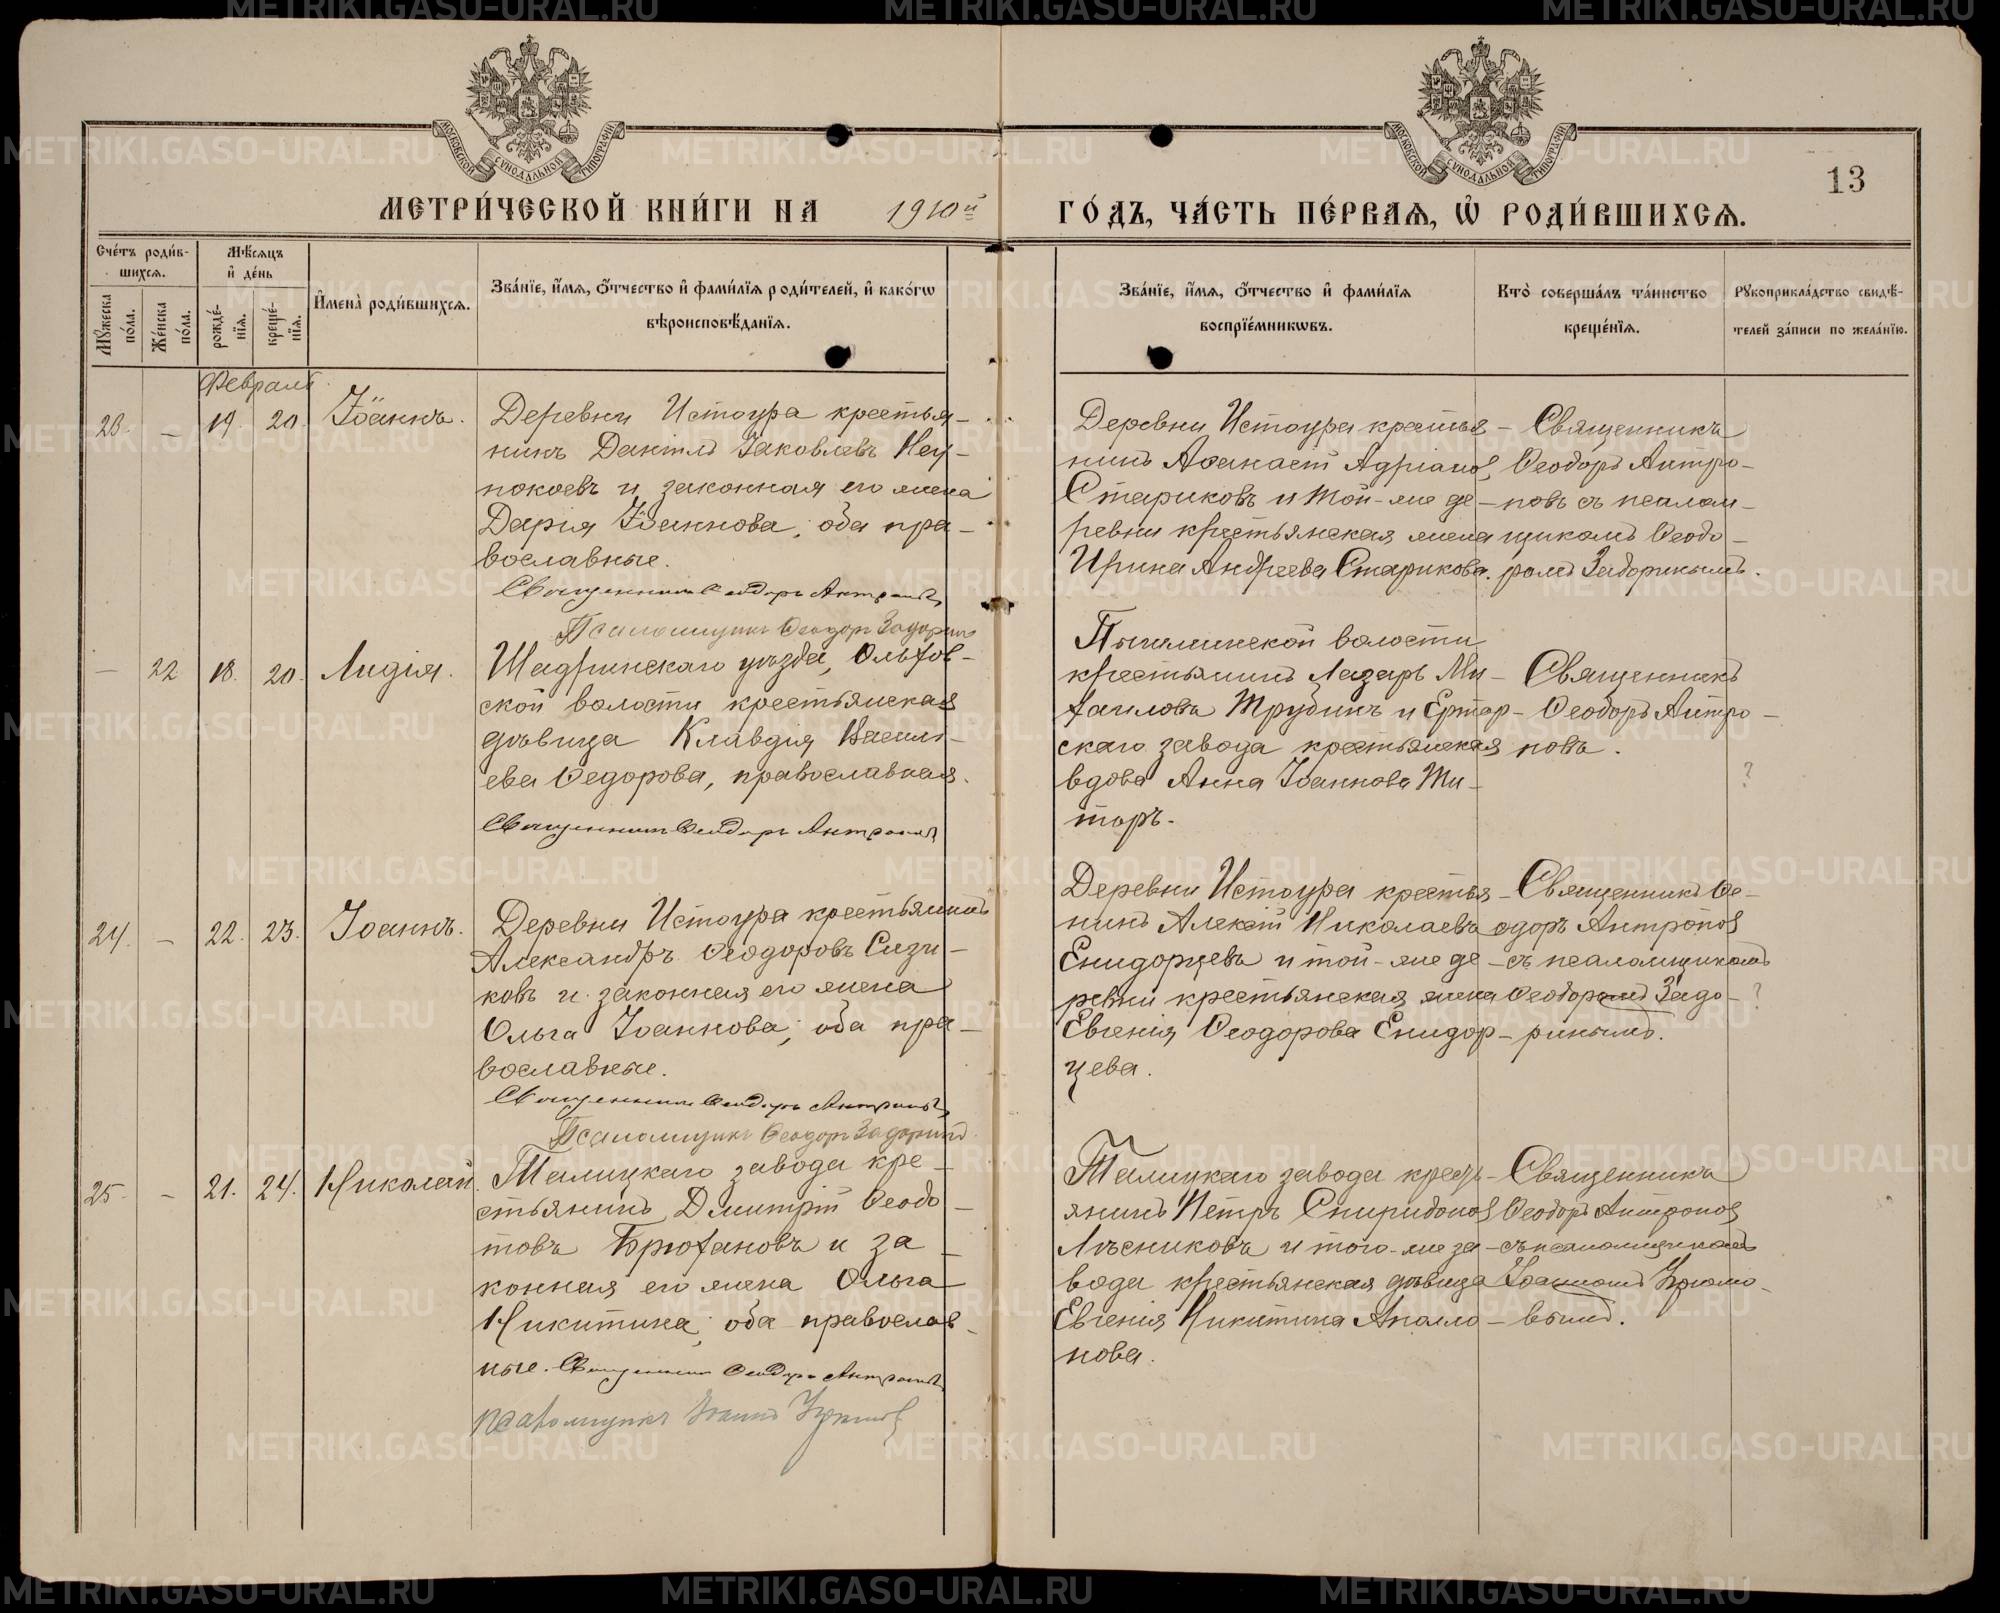 МЕТРИ́ЧЕСКОЙ КНИ́ГИ НА 1910й ГО́ДЪ, ЧА́СТЬ ПЕ́РВАѦ, Ѡ РОДИ́ВШИХСѦ.
13
Сче́тъ роди́в-
шихсѧ.
Мꙋжеска по́ла.
Же́нска по́ла.
Мѣ́сѧцъ
и҆ де́нь
рожде́-
нїѧ.
креще́-
нїѧ.
И҆мена̀ роди́вшихсѧ.
Зва́нїе, и҆́мѧ, ѻ҆́тчество и҆ фами́лїѧ роди́телей, и҆ како́гѡ
вѣроисповѣ́данїѧ.
Зва́нїе, и҆́мѧ, ѻ҆́тчество и҆ фами́лїѧ
воспрїе́мникѡвъ.
Кто̀ соверша́лъ та́инство
креще́нїѧ.
Рꙋкоприкла́дство свидѣ́-
телей за́писи по жела́нїю.
Февраль
23. – 19. 20. Іоаннъ.
Деревни Истоура крестья-
нинъ Даніилъ Іаковлевъ Неу-
покоевъ и законная его жена
Дарія Іоаннова, оба пра-
вославные.
Священникъ Ѳеодоръ Антроповъ
Псаломщикъ Ѳеодоръ Задоринъ
Деревни Истоура крестья-
нинъ Аѳанасій Адріановъ
Стариковъ и той-же де-
ревни крестьянская жена
Ирина Андреева Старикова.
Священникъ
Ѳеодоръ Антро-
повъ съ псалом-
щикомъ Ѳеодо-
ромъ Задоринымъ.
– 22 18. 20. Лидія.
Шадринскаго уѣзда, Ольхов-
ской волости крестьянская
дѣвица Клавдія Василь-
ева Ѳедорова, православная.
Священникъ Ѳеодоръ Антроповъ
Пышминской волости
крестьянинъ Лазарь Ми-
хаиловъ Трубинъ и Ертар-
скаго завода крестьянская
вдова Анна Іоаннова Ти-
торъ.
Священникъ
Ѳеодоръ Антро-
повъ.
?
24. – 22. 23. Іоаннъ.
Деревни Истоура крестьянинъ
Александръ Ѳеодоровъ Сизи-
ковъ и законная его жена
Ольга Іоаннова, оба пра-
вославные.
Священникъ Ѳеодоръ Антроповъ
Псаломщикъ Ѳеодоръ Задоринъ
Деревни Истоура крестья-
нинъ Алексій Николаевъ
Енидорцевъ и той-же де-
ревни крестьянская жена
Евгенія Ѳеодорова Енидор-
цева.
Священникъ Ѳе-
одоръ Антроповъ
съ псаломщикомъ
Ѳеодоромъ Задо-
ринымъ.
?
25. – 21. 24. Николай.
Талицкаго завода кре-
стьянинъ Димитрій Ѳеодо-
товъ Брюхановъ и за-
конная его жена Ольга
Никитина, оба православ-
ные. Священникъ Ѳеодоръ Антроповъ
псаломщикъ Іоаннъ
Талицкаго завода кресть-
янинъ Петръ Спиридоновъ
Лѣсниковъ и того-же за-
вода крестьянская дѣвица
Евгенія Никитина Аполло-
нова.
Священникъ
Ѳеодоръ Антроповъ
съ псаломщикомъ
Іоанномъ
-вымъ.